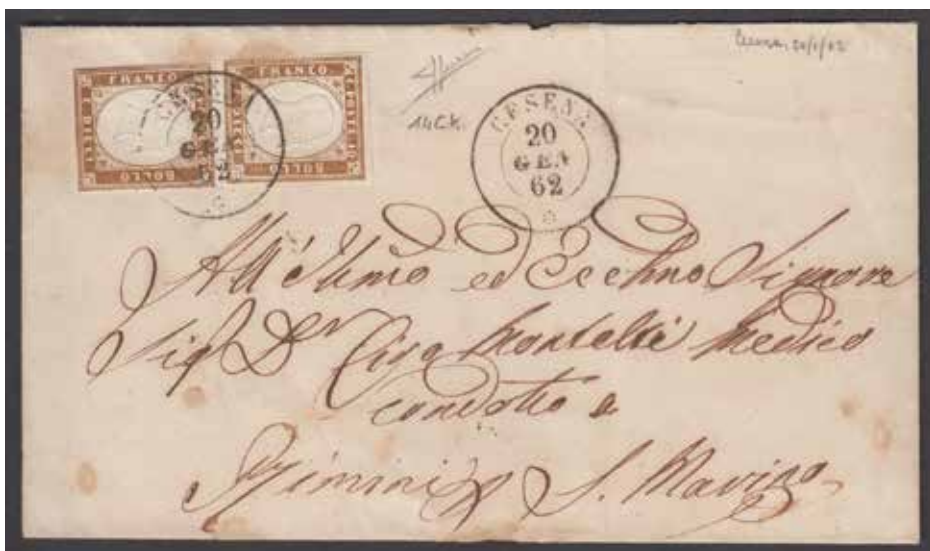 FRANCO
BOLLO
FRANCO
BOLLO
CESENA
20
GEN
62
14Ck.
CESENA
20
GEN
62
20/1/62
All'Illmo ed Ecclmo Signore
Sig Dr Ciro Montalti Medico
condotto a
Rimini S. Marino